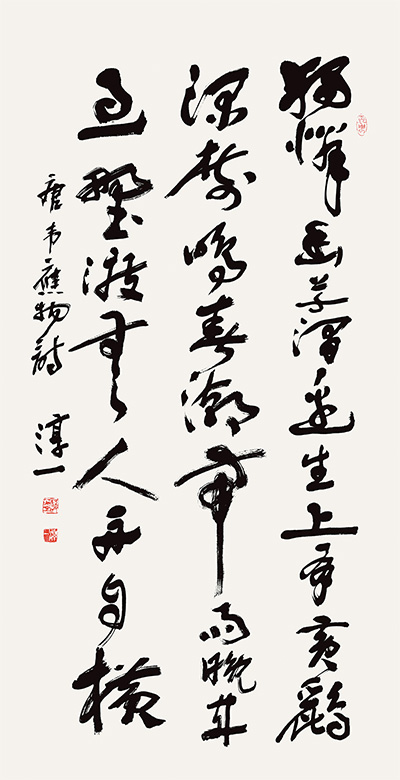 獨憐幽草澗邊生上有黃鸝
深樹鳴春潮帶雨晚來
急野渡無人舟自橫
唐韋應物詩 淳一